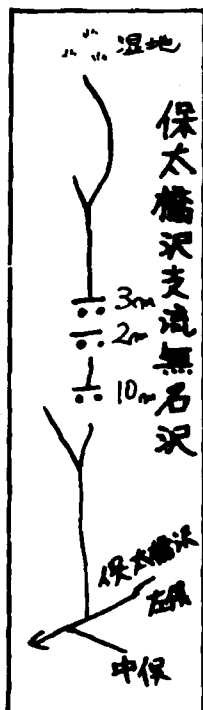 保太橋沢支流無名沢
湿地
3m
2m
10m
保太橋沢
左俣
中俣